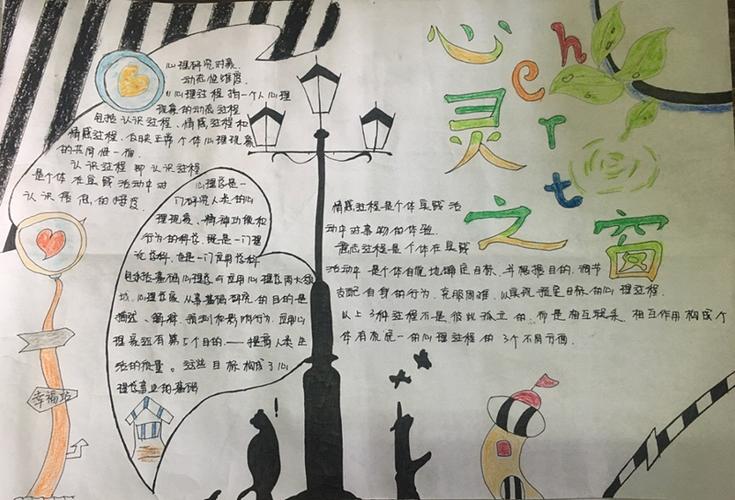 心灵之窗
hert
心理研究对象
动态性维度
心理过程指一个人心理
现象的动态过程
包括认识过程、情感过程和
情感过程,反映正常个体心理现象
的共同性一面
认识过程即认识过程
是个体在实践活动中对
认识信息的
心理学是一
门研究人类的心
理现象、精神功能和
行为的科学,既是一门理
论学科,也是一门应用学科
包括基础心理学与应用心理学两大领
域,心理学家从事基础研究的目的是
描述、解释、预测和影响行为,应用心
理学还有第5个目的——提高人类生
活的质量。这些目标构成了心
理学事业的基础
情感过程是个体实践活
动中对事物的体验
意志过程是个体在实践
活动中是个体自觉地确定目标、并根据目的、调节
支配自身的行为,克服困难,以实现预定目标的心理过程
以上3种过程不是彼此孤立的,而是相互联系,相互作用构成个
体有机统一的心理过程的3个不同方面.
幸福站